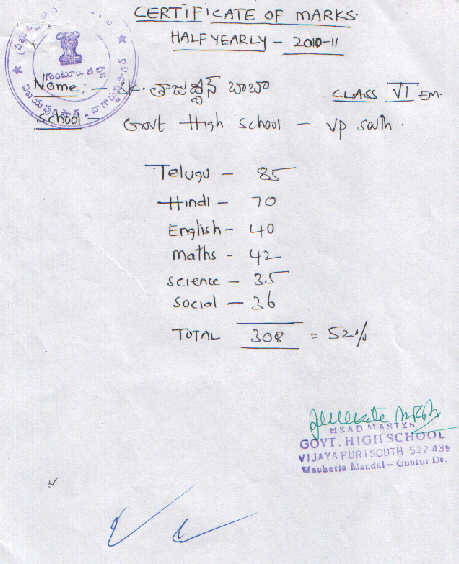 CERTIFICATE OF MARKS
HALF YEARLY - 2010-11
Name: - SK. తాజుద్దీన్ బాబా CLASS VI EM.
School: - Govt High School - VP South.
Telugu - 85
Hindi - 70
English - 40
Maths - 42
Science - 35
Social - 36
TOTAL 308 = 52%
HEAD MASTER
GOVT. HIGH SCHOOL
VIJAYAPURI SOUTH 522 439
Macherla Mandal - Guntur Dt.